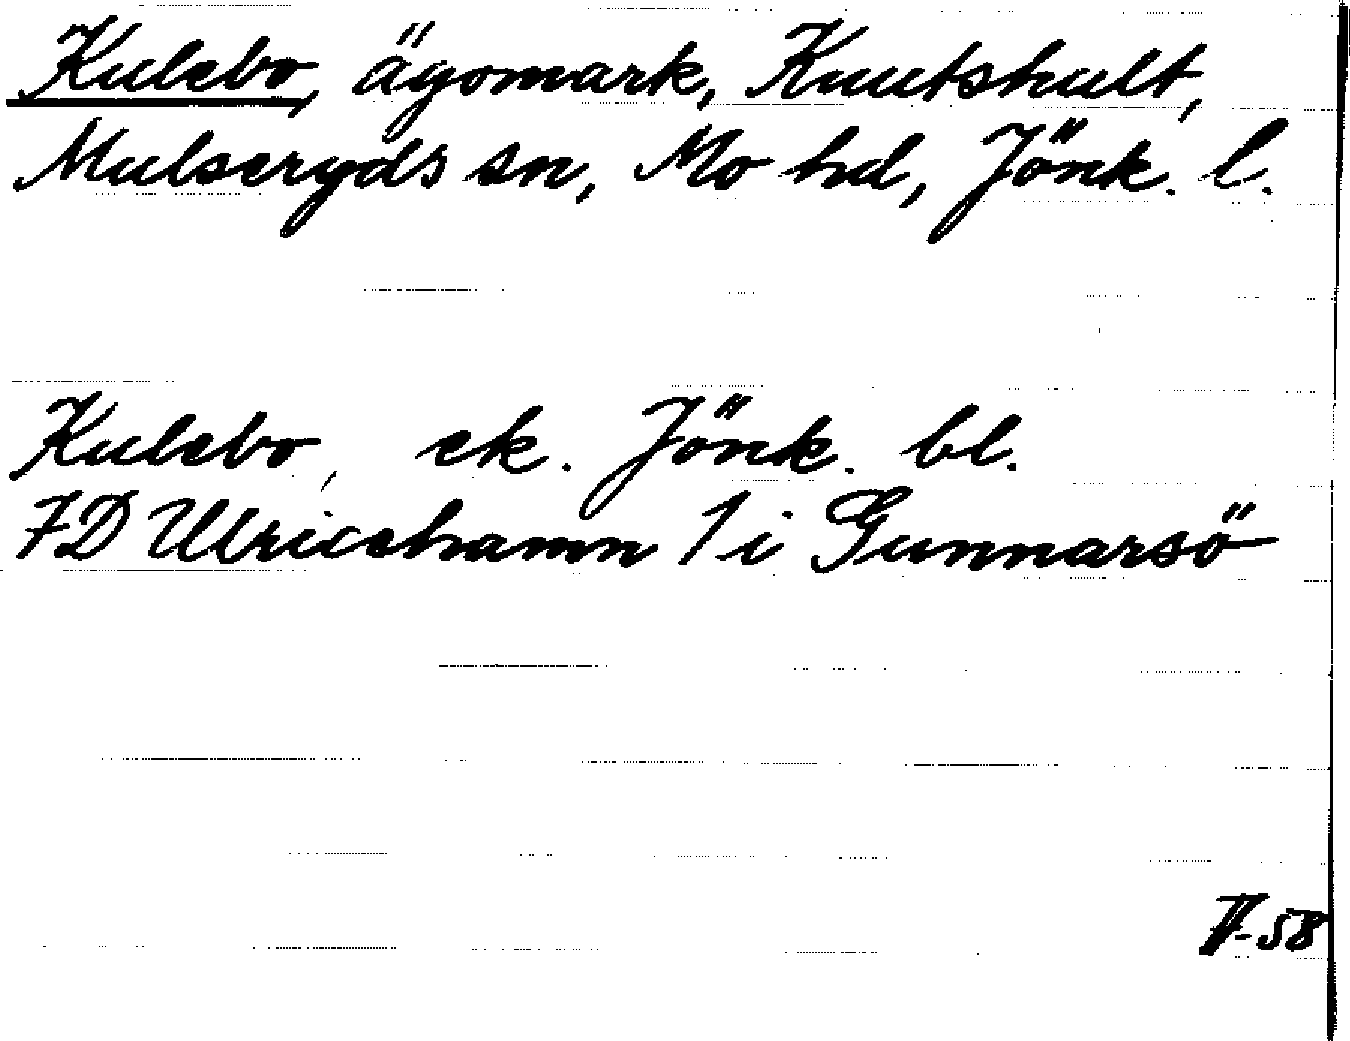 Kulebo, ägomark, Knutshult,
Mulseryds sn, Mo hd, Jönk. l.
Kulebo, ek. Jönk. bl.
7D Ulricehamn 1 i Gunnarsö
V-58